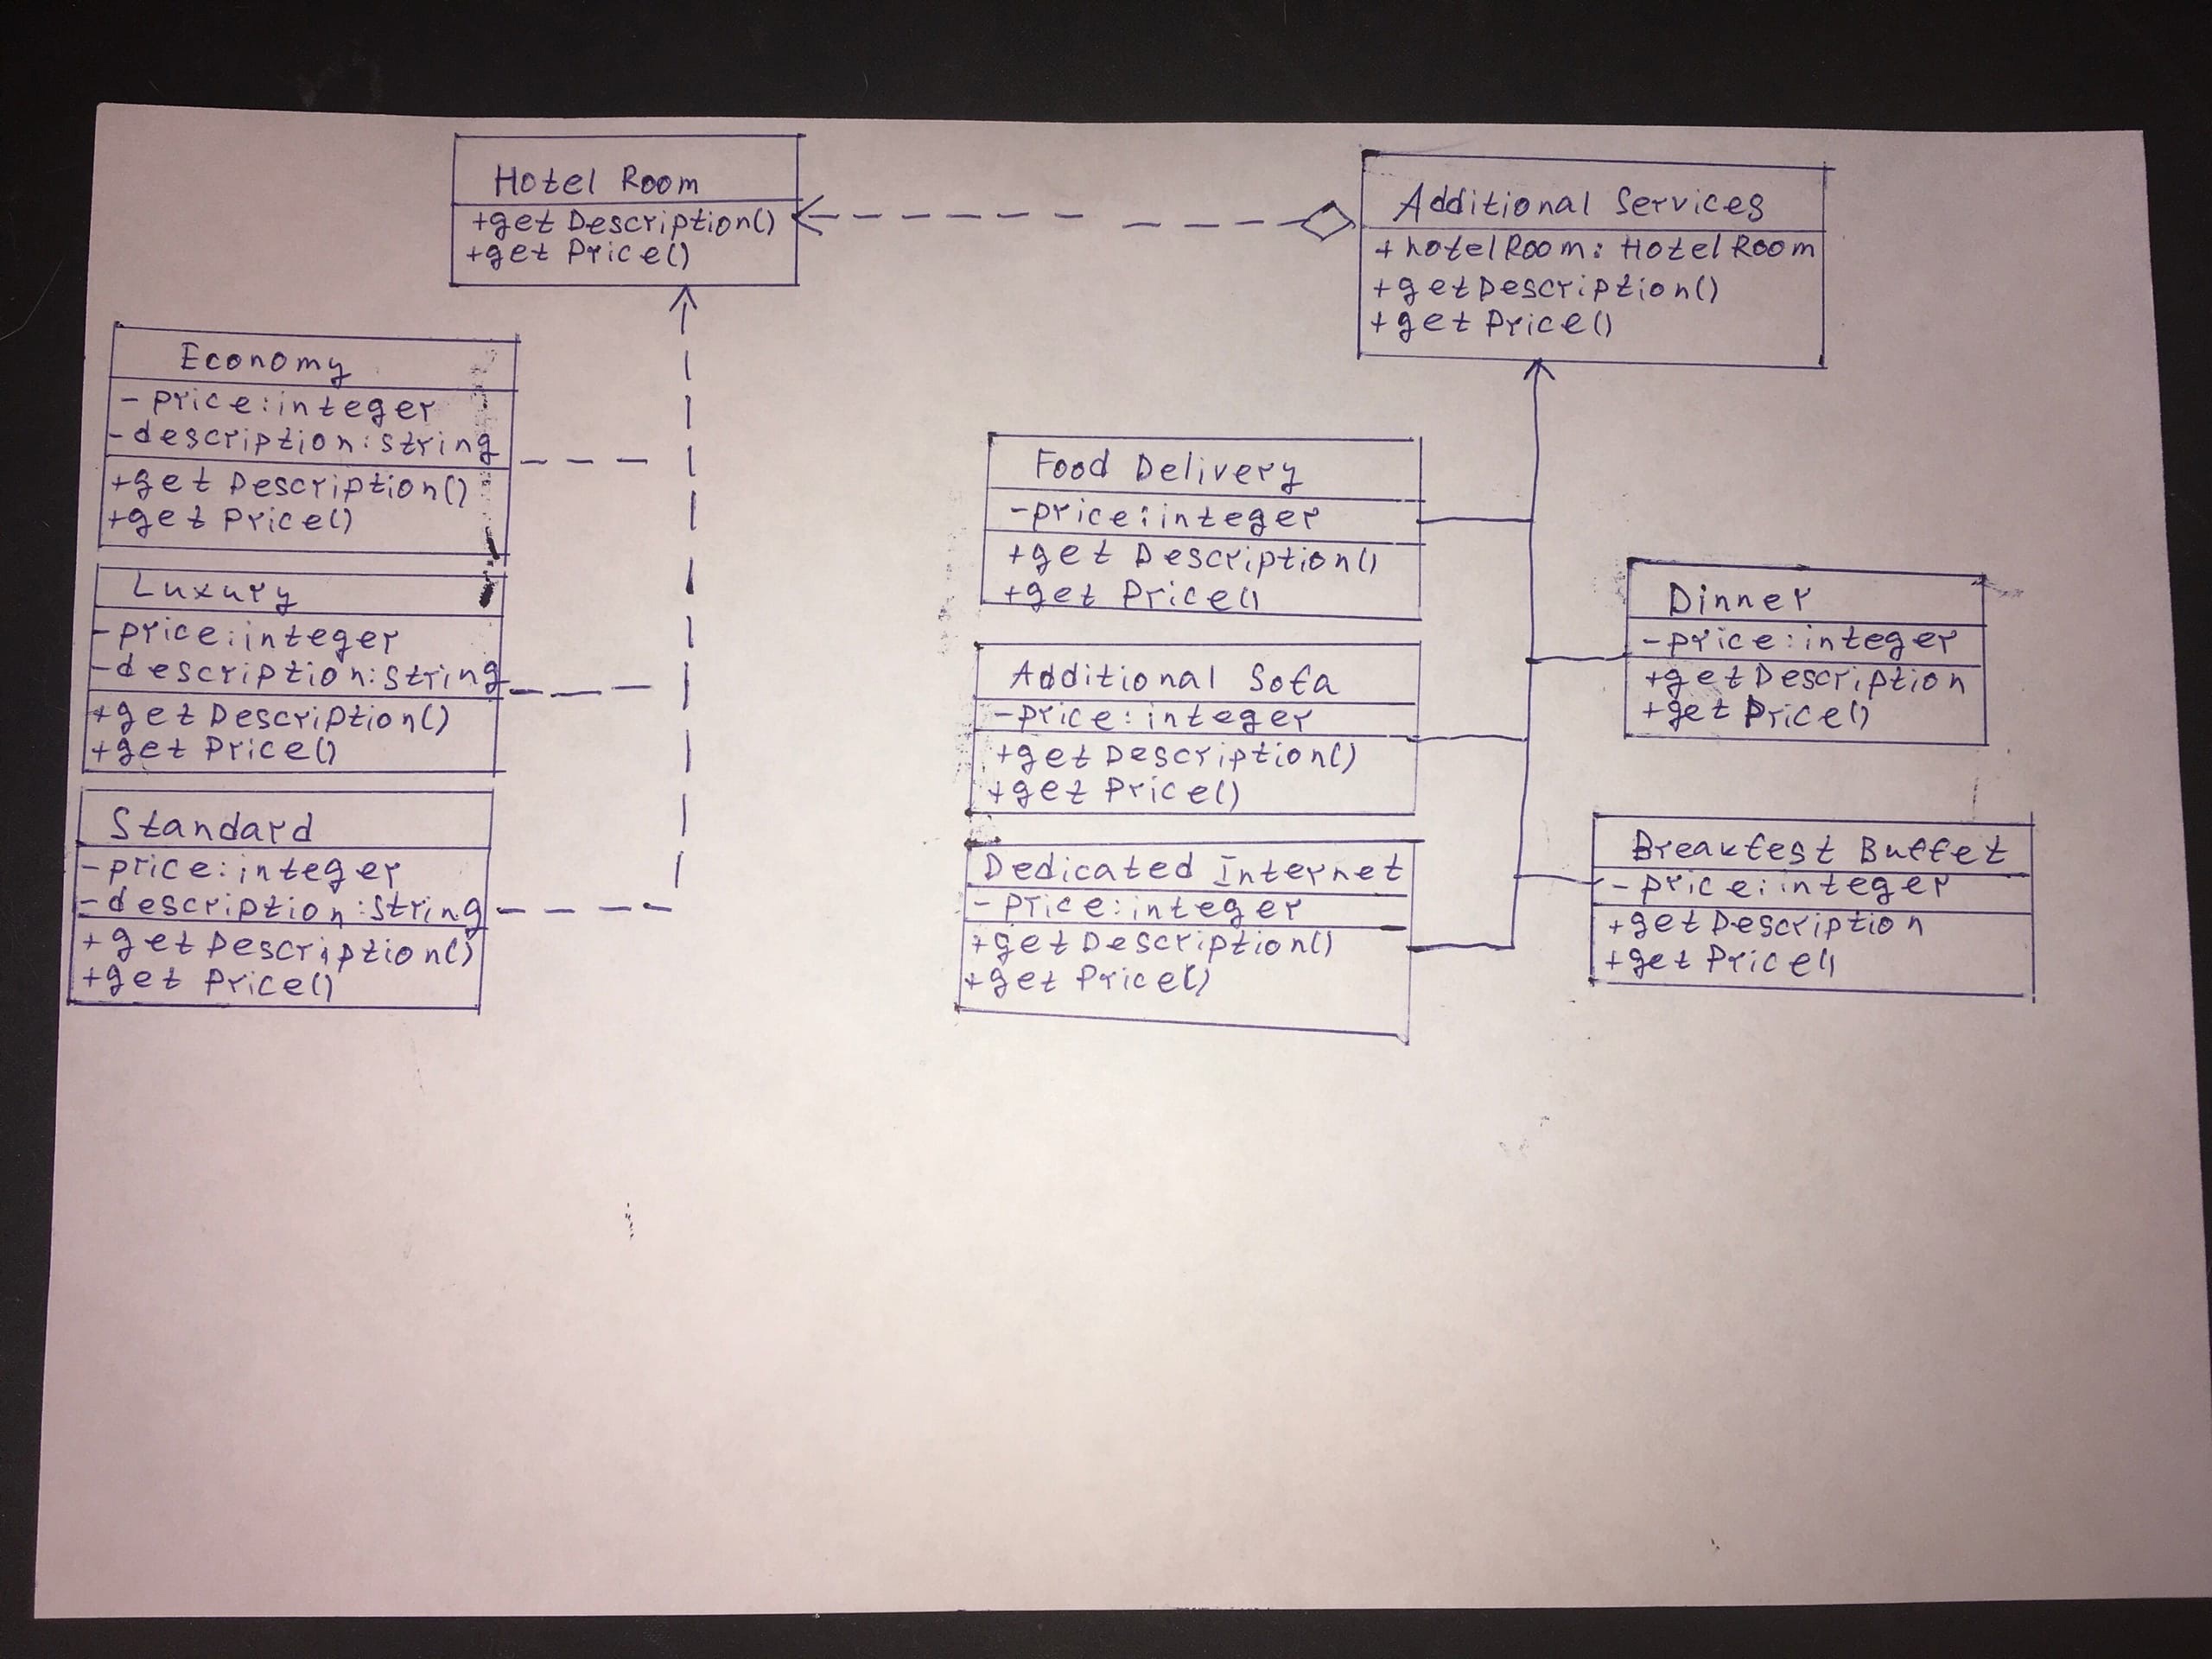 Hotel Room
+get Description()
+get Price()
Additional Services
+hotelRoom: HotelRoom
+getDescription()
+get Price()
Economy
-price:integer
-description:string
+get Description()
+get Price()
Luxury
-price:integer
-description:string
+get Description()
+get Price()
Standard
-price:integer
-description:string
+get Description()
+get Price()
Food Delivery
-price:integer
+get Description()
+get Price()
Additional Sofa
-price:integer
+get Description()
+get Price()
Dedicated Internet
-price:integer
+get Description()
+get Price()
Dinner
-price:integer
+get Description
+get Price()
Breakfest Buffet
-price:integer
+get Description
+get Price()